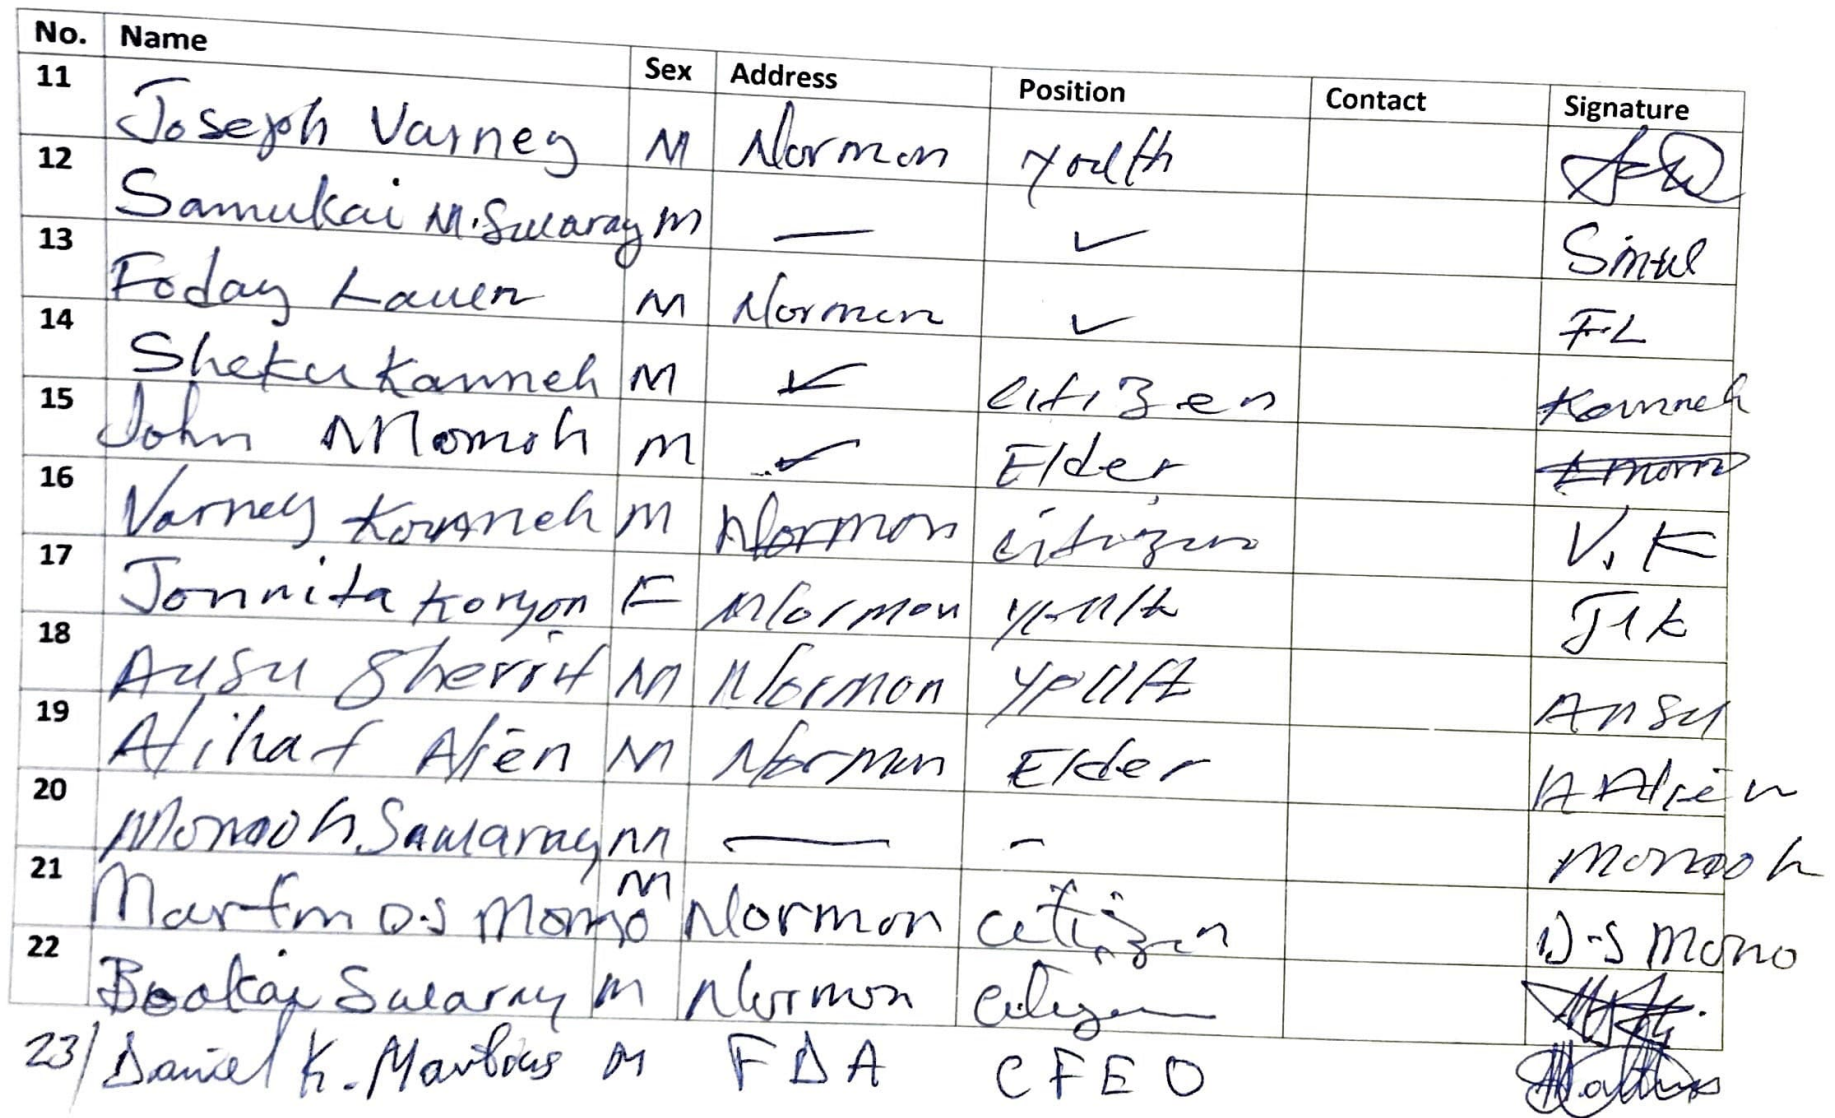 No. Name Sex Address Position Contact Signature
11 Joseph Varney M Normon youth
12 Samukai M. Swaray M — ✓
13 Foday M Normon ✓ F.L
14 Sheku Kanneh M ✓ citizen Kanneh
15 John Momoh M ✓ Elder
16 Varney Konneh M Normon citizen V. K
17 Jonnita Koryon F Normon youth
18 Ansu Sherrif M Normon youth Ansu
19 M Normon Elder
20 Momoh Sawaray M — - Momoh
21 Martin D.S Momo M Normon citizen D-S Momo
22 Bookai Swaray M Normon citizen
23/ Daniel K. M FDA CFEO